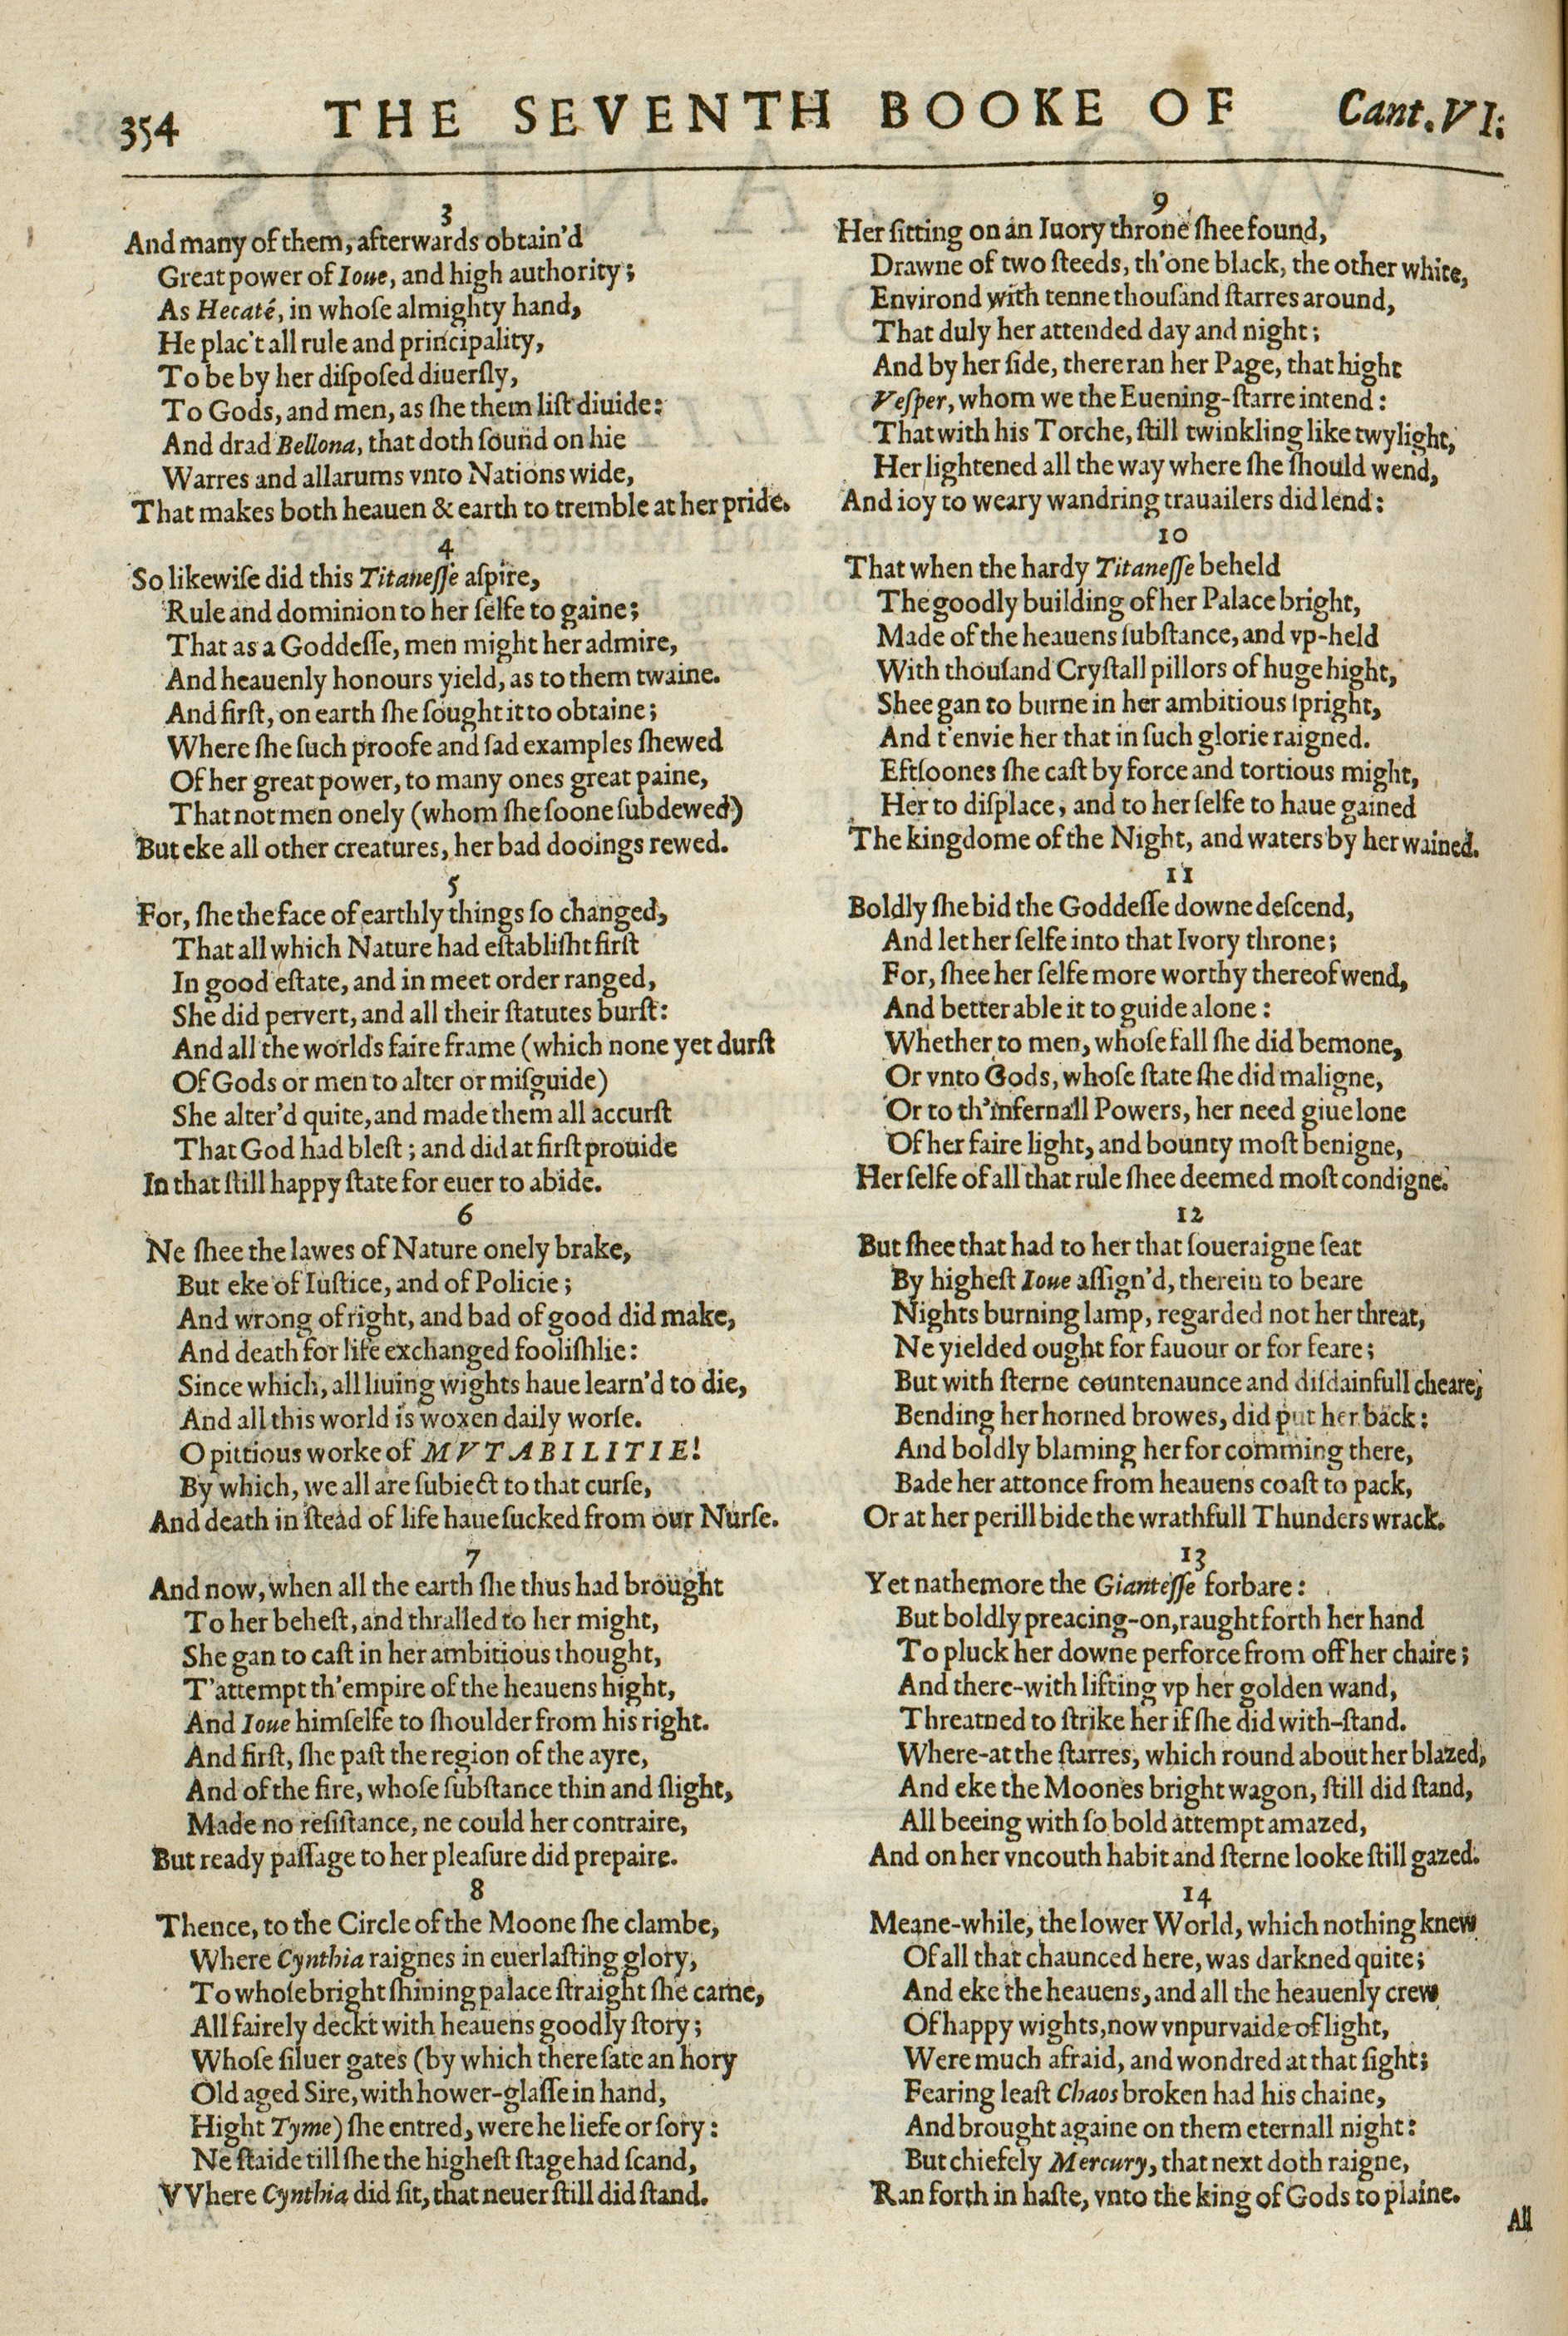 354 THE SEVENTH BOOKE OF Cant. VI:
3
And many of them, afterwards obtain'd
Great power of Ioue, and high authority;
As Hecaté, in whoſe almighty hand,
He plac't all rule and principality,
To be by her diſpoſed diuerſly,
To Gods, and men, as ſhe them liſt diuide:
And drad Bellona, that doth ſound on hie
Warres and allarums vnto Nations wide,
That makes both heauen & earth to tremble at her pride.
4
So likewiſe did this Titaneſſe aſpire,
Rule and dominion to her ſelfe to gaine;
That as a Goddeſſe, men might her admire,
And heauenly honours yield, as to them twaine.
And firſt, on earth ſhe ſought it to obtaine;
Where ſhe ſuch proofe and ſad examples ſhewed
Of her great power, to many ones great paine,
That not men onely (whom ſhe ſoone ſubdewed)
But eke all other creatures, her bad dooings rewed.
5
For, ſhe the face of earthly things ſo changed,
That all which Nature had eſtabliſht firſt
In good eſtate, and in meet order ranged,
She did pervert, and all their ſtatutes burſt:
And all the worlds faire frame (which none yet durſt
Of Gods or men to alter or miſguide)
She alter'd quite, and made them all accurſt
That God had bleſt; and did at firſt prouide
In that ſtill happy ſtate for euer to abide.
6
Ne ſhee the lawes of Nature onely brake,
But eke of Iuſtice, and of Policie;
And wrong of right, and bad of good did make,
And death for life exchanged fooliſhlie:
Since which, all liuing wights haue learn'd to die,
And all this world is woxen daily worſe.
O pittious worke of MVTABILITIE!
By which, we all are ſubiect to that curſe,
And death in ſtead of life haue ſucked from our Nurſe.
7
And now, when all the earth ſhe thus had brought
To her beheſt, and thralled to her might,
She gan to caſt in her ambitious thought,
T'attempt th'empire of the heauens hight,
And Ioue himſelfe to ſhoulder from his right.
And firſt, ſhe paſt the region of the ayre,
And of the fire, whoſe ſubſtance thin and ſlight,
Made no reſiſtance, ne could her contraire,
But ready paſſage to her pleaſure did prepaire.
8
Thence, to the Circle of the Moone ſhe clambe,
Where Cynthia raignes in euerlaſting glory,
To whoſe bright ſhining palace ſtraight ſhe came,
All fairely deckt with heauens goodly ſtory;
Whoſe ſiluer gates (by which there ſate an hory
Old aged Sire, with hower-glaſſe in hand,
Hight Tyme) ſhe entred, were he liefe or ſory:
Ne ſtaide till ſhe the higheſt ſtage had ſcand,
VVhere Cynthia did ſit, that neuer ſtill did ſtand.
9
Her ſitting on an Iuory throne ſhee found,
Drawne of two ſteeds, th'one black, the other white,
Environd with tenne thouſand ſtarres around,
That duly her attended day and night;
And by her ſide, there ran her Page, that hight
Veſper, whom we the Euening-ſtarre intend:
That with his Torche, ſtill twinkling like twylight,
Her lightened all the way where ſhe ſhould wend,
And ioy to weary wandring trauailers did lend:
10
That when the hardy Titaneſſe beheld
The goodly building of her Palace bright,
Made of the heauens ſubſtance, and vp-held
With thouſand Cryſtall pillors of huge hight,
Shee gan to burne in her ambitious ſpright,
And t'envie her that in ſuch glorie raigned.
Eftſoones ſhe caſt by force and tortious might,
Her to diſplace, and to her ſelfe to haue gained
The kingdome of the Night, and waters by her wained.
11
Boldly ſhe bid the Goddeſſe downe deſcend,
And let her ſelfe into that Ivory throne;
For, ſhee her ſelfe more worthy thereof wend,
And better able it to guide alone:
Whether to men, whoſe fall ſhe did bemone,
Or vnto Gods, whoſe ſtate ſhe did maligne,
Or to th'infernall Powers, her need giue lone
Of her faire light, and bounty moſt benigne,
Her ſelfe of all that rule ſhee deemed moſt condigne.
12
But ſhee that had to her that ſoueraigne ſeat
By higheſt Ioue aſſign'd, therein to beare
Nights burning lamp, regarded not her threat,
Ne yielded ought for fauour or for feare;
But with ſterne countenaunce and diſdainfull cheare,
Bending her horned browes, did put her back:
And boldly blaming her for comming there,
Bade her attonce from heauens coaſt to pack,
Or at her perill bide the wrathfull Thunders wrack.
13
Yet nathemore the Gianteſſe forbare:
But boldly preacing-on, raught forth her hand
To pluck her downe perforce from off her chaire;
And there-with lifting vp her golden wand,
Threatned to ſtrike her if ſhe did with-ſtand.
Where-at the ſtarres, which round about her blazed,
And eke the Moones bright wagon, ſtill did ſtand,
All beeing with ſo bold attempt amazed,
And on her vncouth habit and ſterne looke ſtill gazed.
14
Meane-while, the lower World, which nothing knew
Of all that chaunced here, was darkned quite;
And eke the heauens, and all the heauenly crew
Of happy wights, now vnpurvaide of light,
Were much afraid, and wondred at that ſight;
Fearing leaſt Chaos broken had his chaine,
And brought againe on them eternall night:
But chiefely Mercury, that next doth raigne,
Ran forth in haſte, vnto the king of Gods to plaine.
All